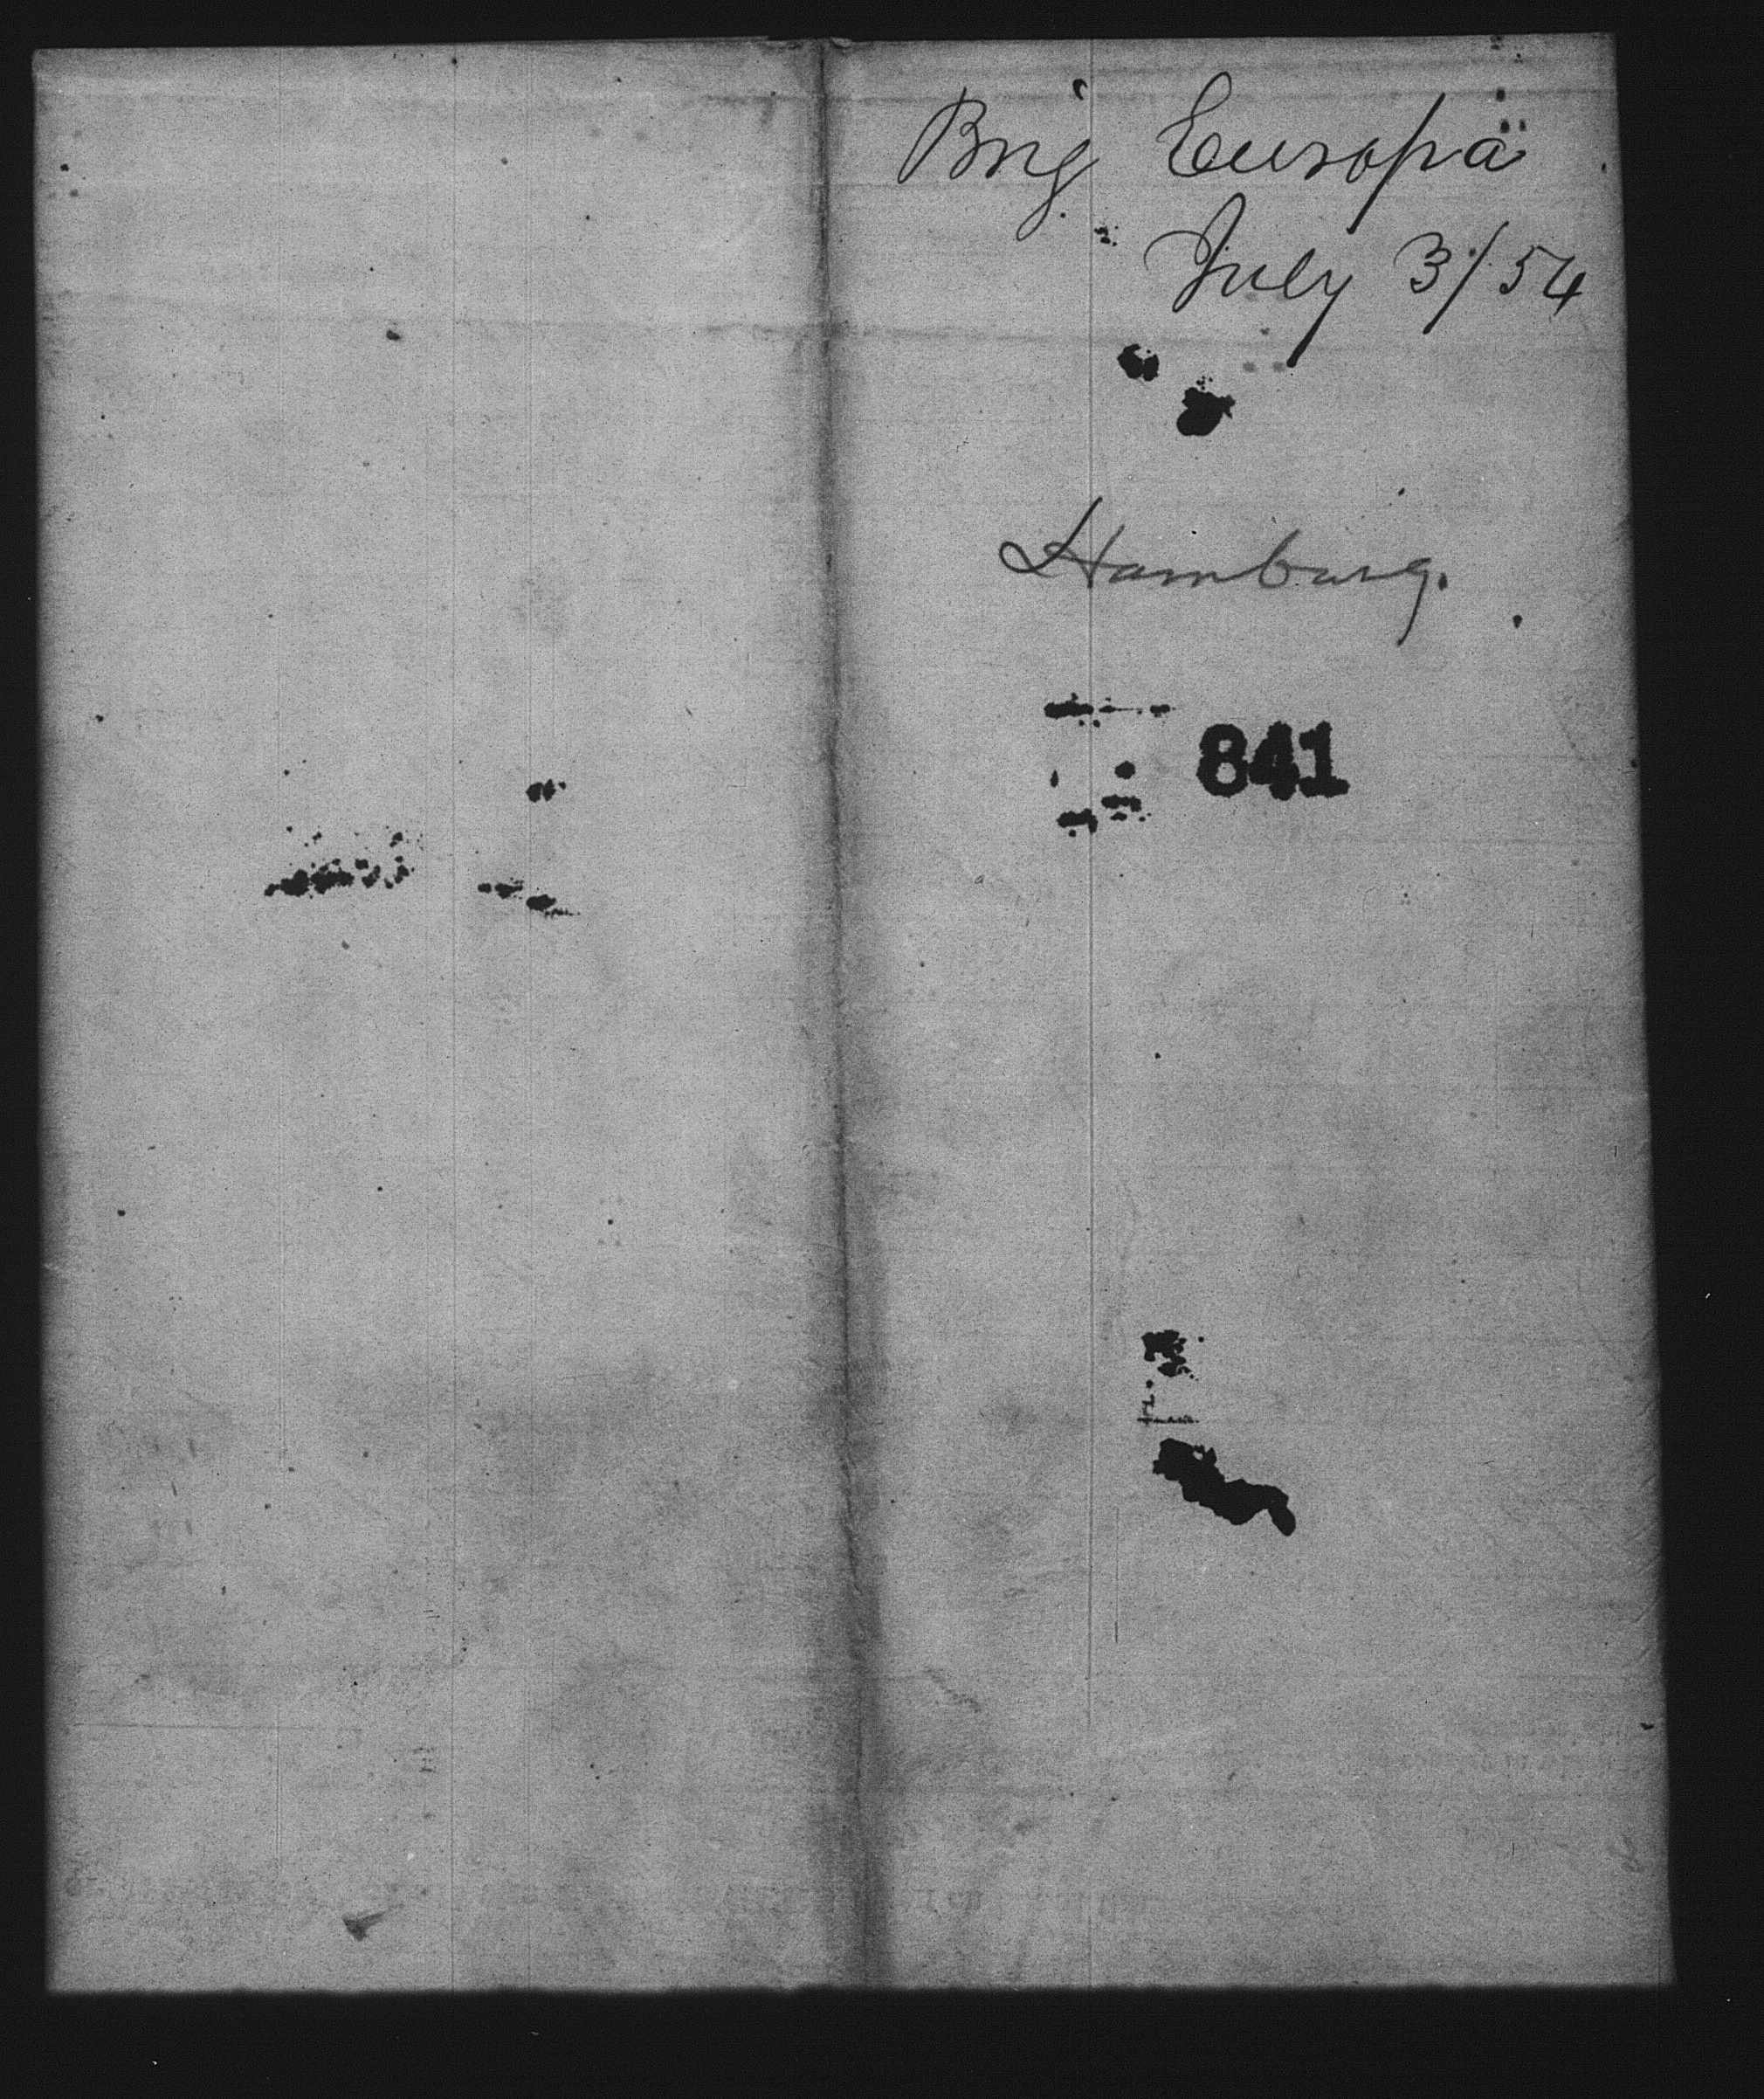 Brig Europa
July 3/54
Hamburg.
841